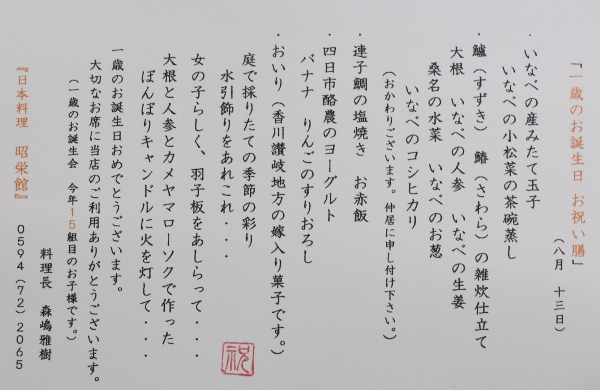 「一歳のお誕生日 お祝い膳」
（八月 十三日）
・いなべの産みたて玉子
いなべの小松菜の茶碗蒸し
・鱸（すずき） 鰆（さわら）の雑炊仕立て
大根 いなべの人参 いなべの生姜
桑名の水菜 いなべのお葱
いなべのコシヒカリ
（おかわりございます。仲居に申し付け下さい。）
・連子鯛の塩焼き お赤飯
・四日市酪農のヨーグルト
バナナ りんごのすりおろし
・おいり（香川讃岐地方の嫁入り菓子です。）
庭で採りたての季節の彩り
水引飾りをあれこれ・・・
女の子らしく、羽子板をあしらって・・・
大根と人参とカメヤマローソクで作った
ぼんぼりキャンドルに火を灯して・・・
祝
一歳のお誕生日おめでとうございます。
大切なお席に当店のご利用ありがとうございます。
（一歳のお誕生会 今年15組目のお子様です。）
料理長 森嶋雅樹
『日本料理 昭栄館』 0594（72）2065